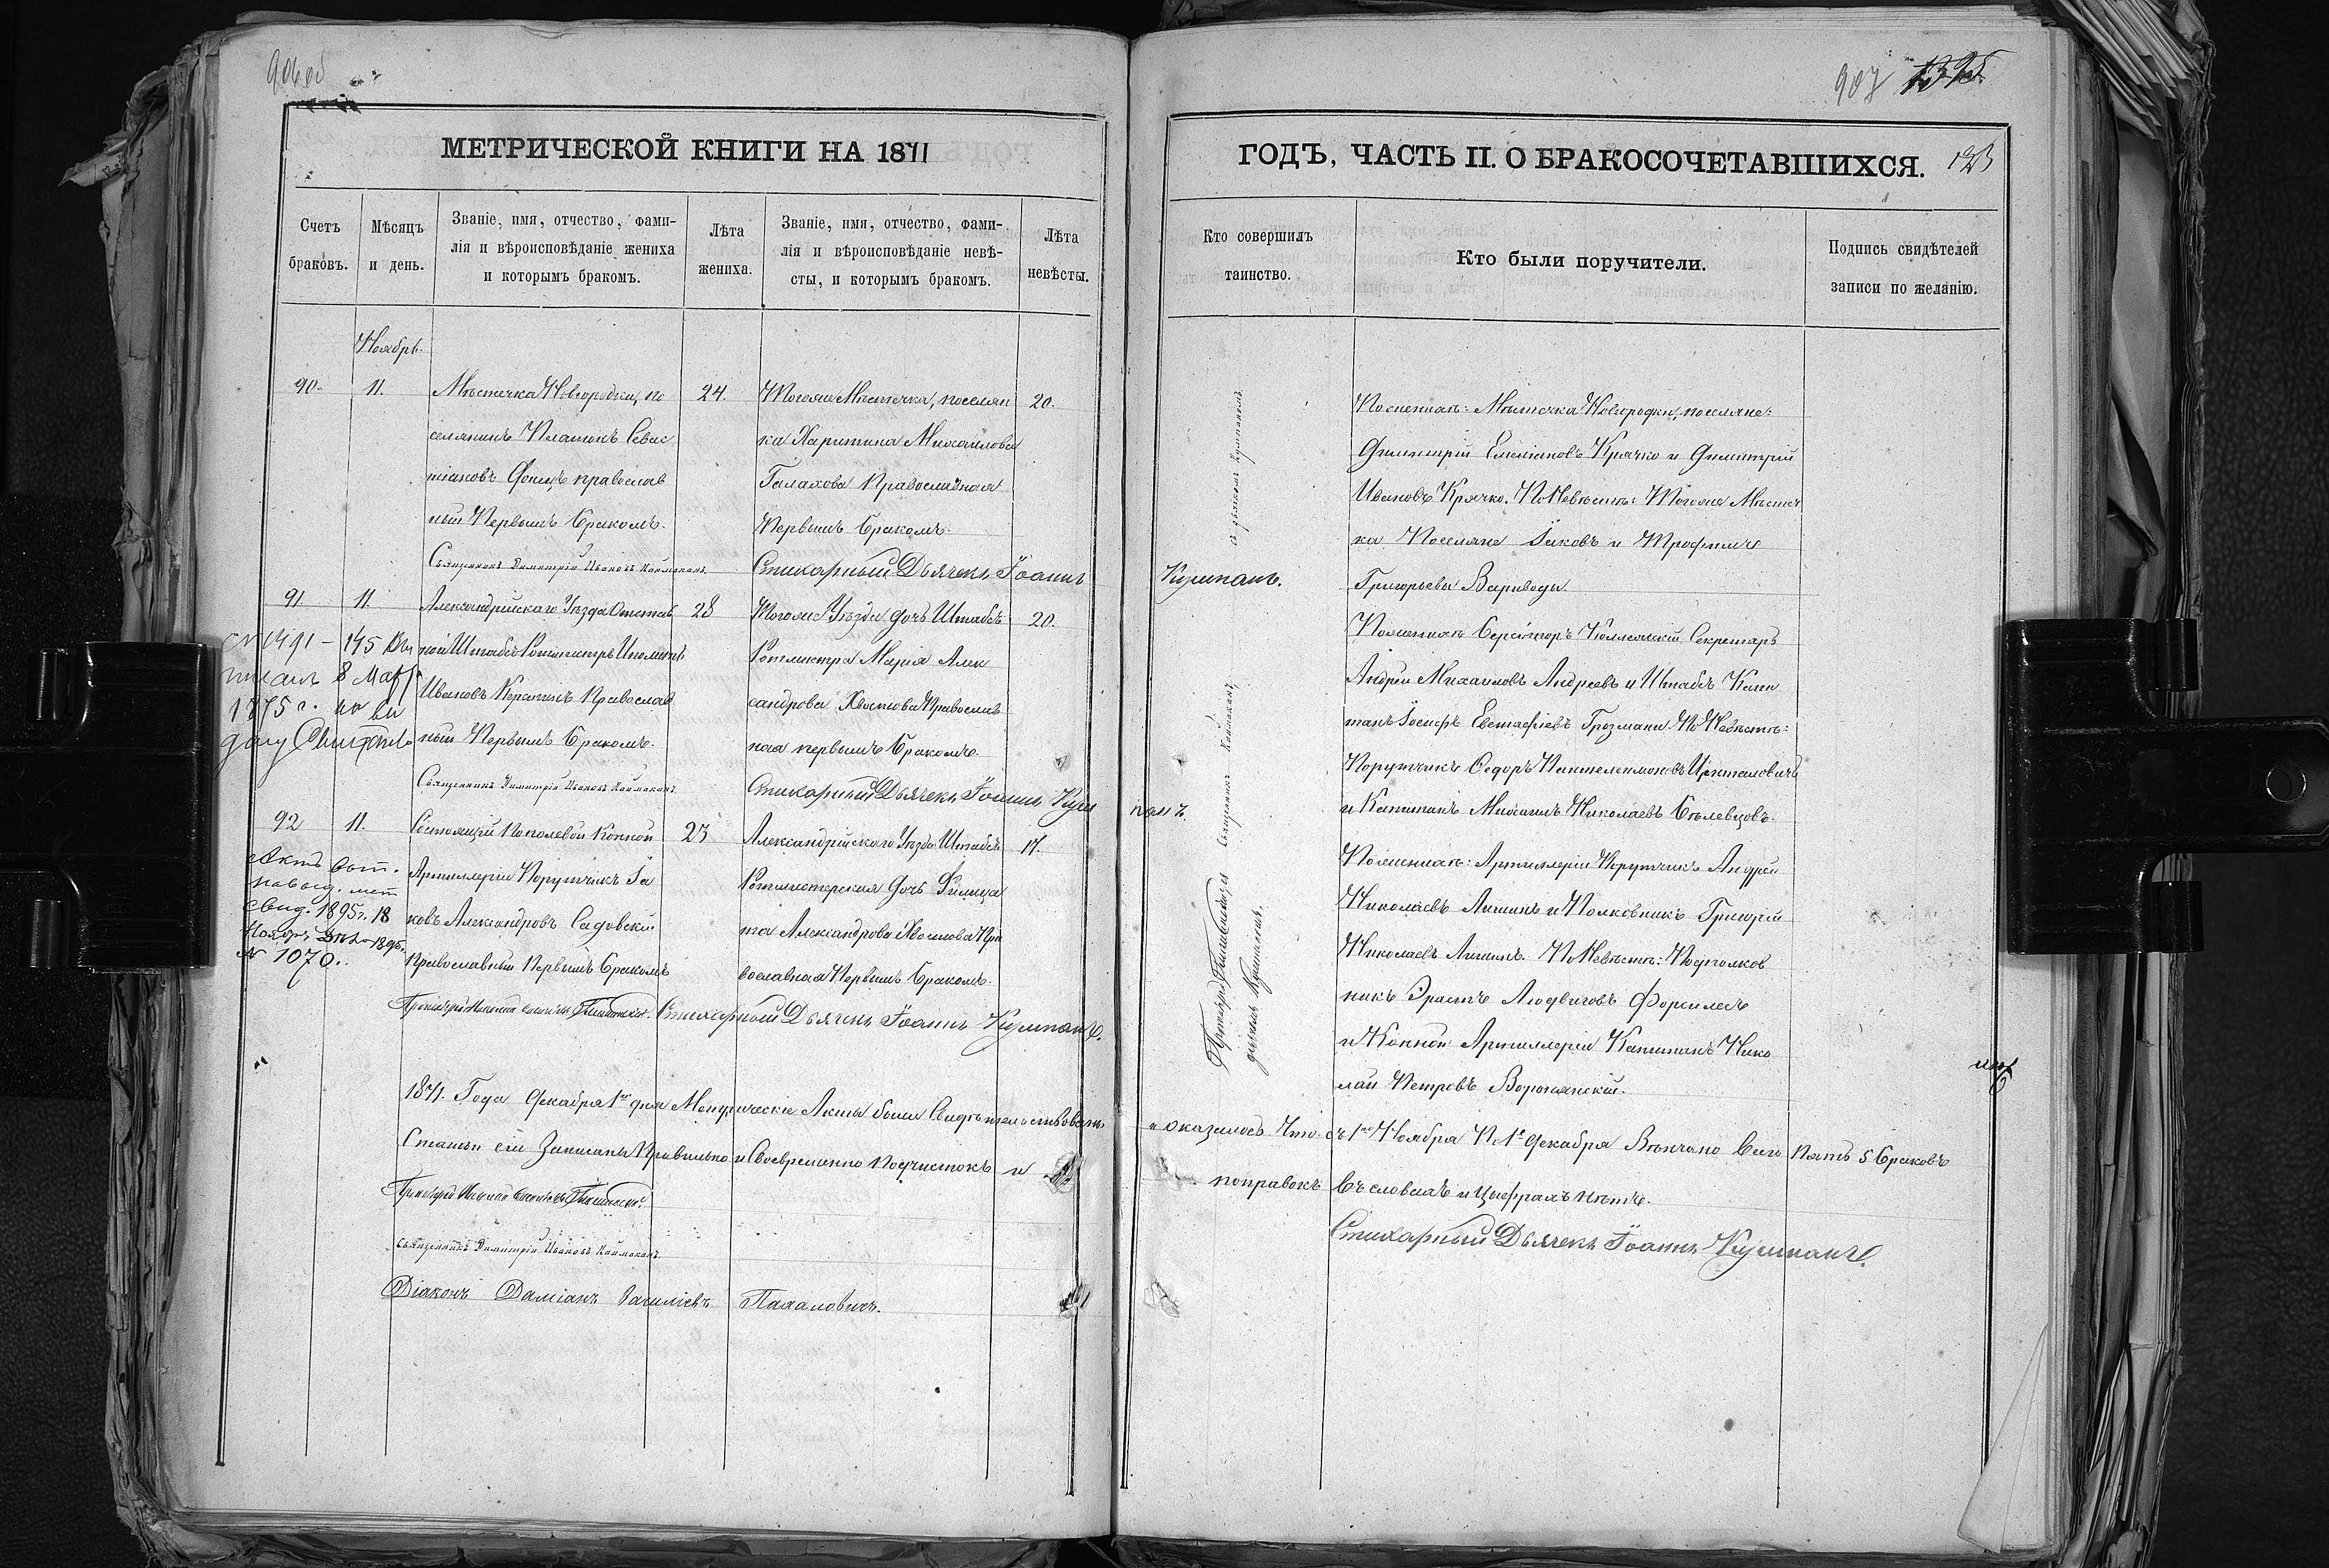 906об
МЕТРИЧЕСКОЙ КНИГИ НА 1871
Счетъ браковъ.
Мѣсяцъ и день.
Званіе, имя, отчество, фами-
лія и вѣроисповѣданіе жениха
и которымъ бракомъ.
Лѣта
жениха.
Званіе, имя, отчество, фами-
лія и вѣроисповѣданіе невѣ-
сты, и которымъ бракомъ.
Лѣта
невѣсты.
Ноябрь.
90.
11.
Мѣстечка Новгородки, по
селянинъ Платонъ Севас
тіановъ православ
ный Первымъ бракомъ.
Священникъ Димитрій Ивановъ Каймаканъ.
24.
Тогоже Мѣстечка, поселян
ка Харитина Михаилова
Галахова Православная
Первымъ бракомъ.
Стихарный Дьячекъ Іоаннъ
20.
91.
11.
Александрійскаго Уѣзда Отстав
ной Штабсъ Ротмистръ Иполитъ
Ивановъ Православ
ный Первымъ бракомъ.
Священникъ Димитрій Ивановъ Каймаканъ.
28
Тогоже Уѣзда дочь Штабсъ
Ротмистра Марія Алек
сандрова Православ
ная первымъ бракомъ.
Стихарный Дьячекъ Іоаннъ Кум
20.
145
8 Мар
1875 г.
92
11.
Состоящій По полевой Конной
Артиллеріи Порутчикъ Іа
ковъ Александровъ Садовскій
Православный Первымъ бракомъ
23
Александрійскаго Уѣзда Штабсъ
Ротмистерская Дочь Фелица
та Александрова Пра
вославная Первымъ бракомъ.
Стихарный Дьячекъ Іоаннъ Кумпанъ.
17.
Актъ
свид. 1895г. 18
Ноябр. 1895.
№ 1070.
1871. Года Декабря 1го дня Метрическіе Акты были Свидѣтельствованы
Статьи сіи Записаны Правильно и Своевременно Подчистокъ и
Священникъ Димитрій Ивановъ Каймаканъ.
Діаконъ Даміанъ Пахаловичъ.
907
1325
ГОДЪ, ЧАСТЬ II. О БРАКОСОЧЕТАВШИХСЯ.
123
Кто совершилъ
таинство.
Кто были поручители.
Подпись свидѣтелей
записи по желанію.
съ дьякомъ Кумпаномъ.
Кумпанъ.
Священникъ Каймаканъ
Поженихѣ: Мѣстечка Новгородки, поселяне:
Димитрій Емеліановъ Крячко и Димитрій
Ивановъ Крячко. По Невѣстѣ: Тогоже Мѣстеч
ка Поселяне Іаковъ и Трофимъ
Григорьевы Вариводы
Поженихѣ Коллежскій Секретарь
Андрей Михаиловъ Андреевъ и Штабсъ Капи
танъ Іосифъ Евстафіевъ Грозманн. По Невѣстѣ:
Порутчикъ Ѳедоръ Пантелеимоновъ
панъ.
и Капитанъ Михаилъ Николаевъ Бѣлевцовъ.
Поженихѣ: Артиллеріи Порутчикъ Андрей
Николаевъ Лишинъ и Полковникъ Григорій
Николаевъ Лишинъ По Невѣстѣ: Подполков
никъ Эрастъ Людвиговъ
и Конной Артиллеріи Капитанъ Нико
лай Петровъ Воронянскій.
и оказалось Что съ 1го Ноября По 1е Декабря Вѣнчано Всего Пять 5 браковъ
поправокъ Въ словахъ и Цыфрахъ нѣтъ.
Стихарный Дьячекъ Іоаннъ Кумпанъ.